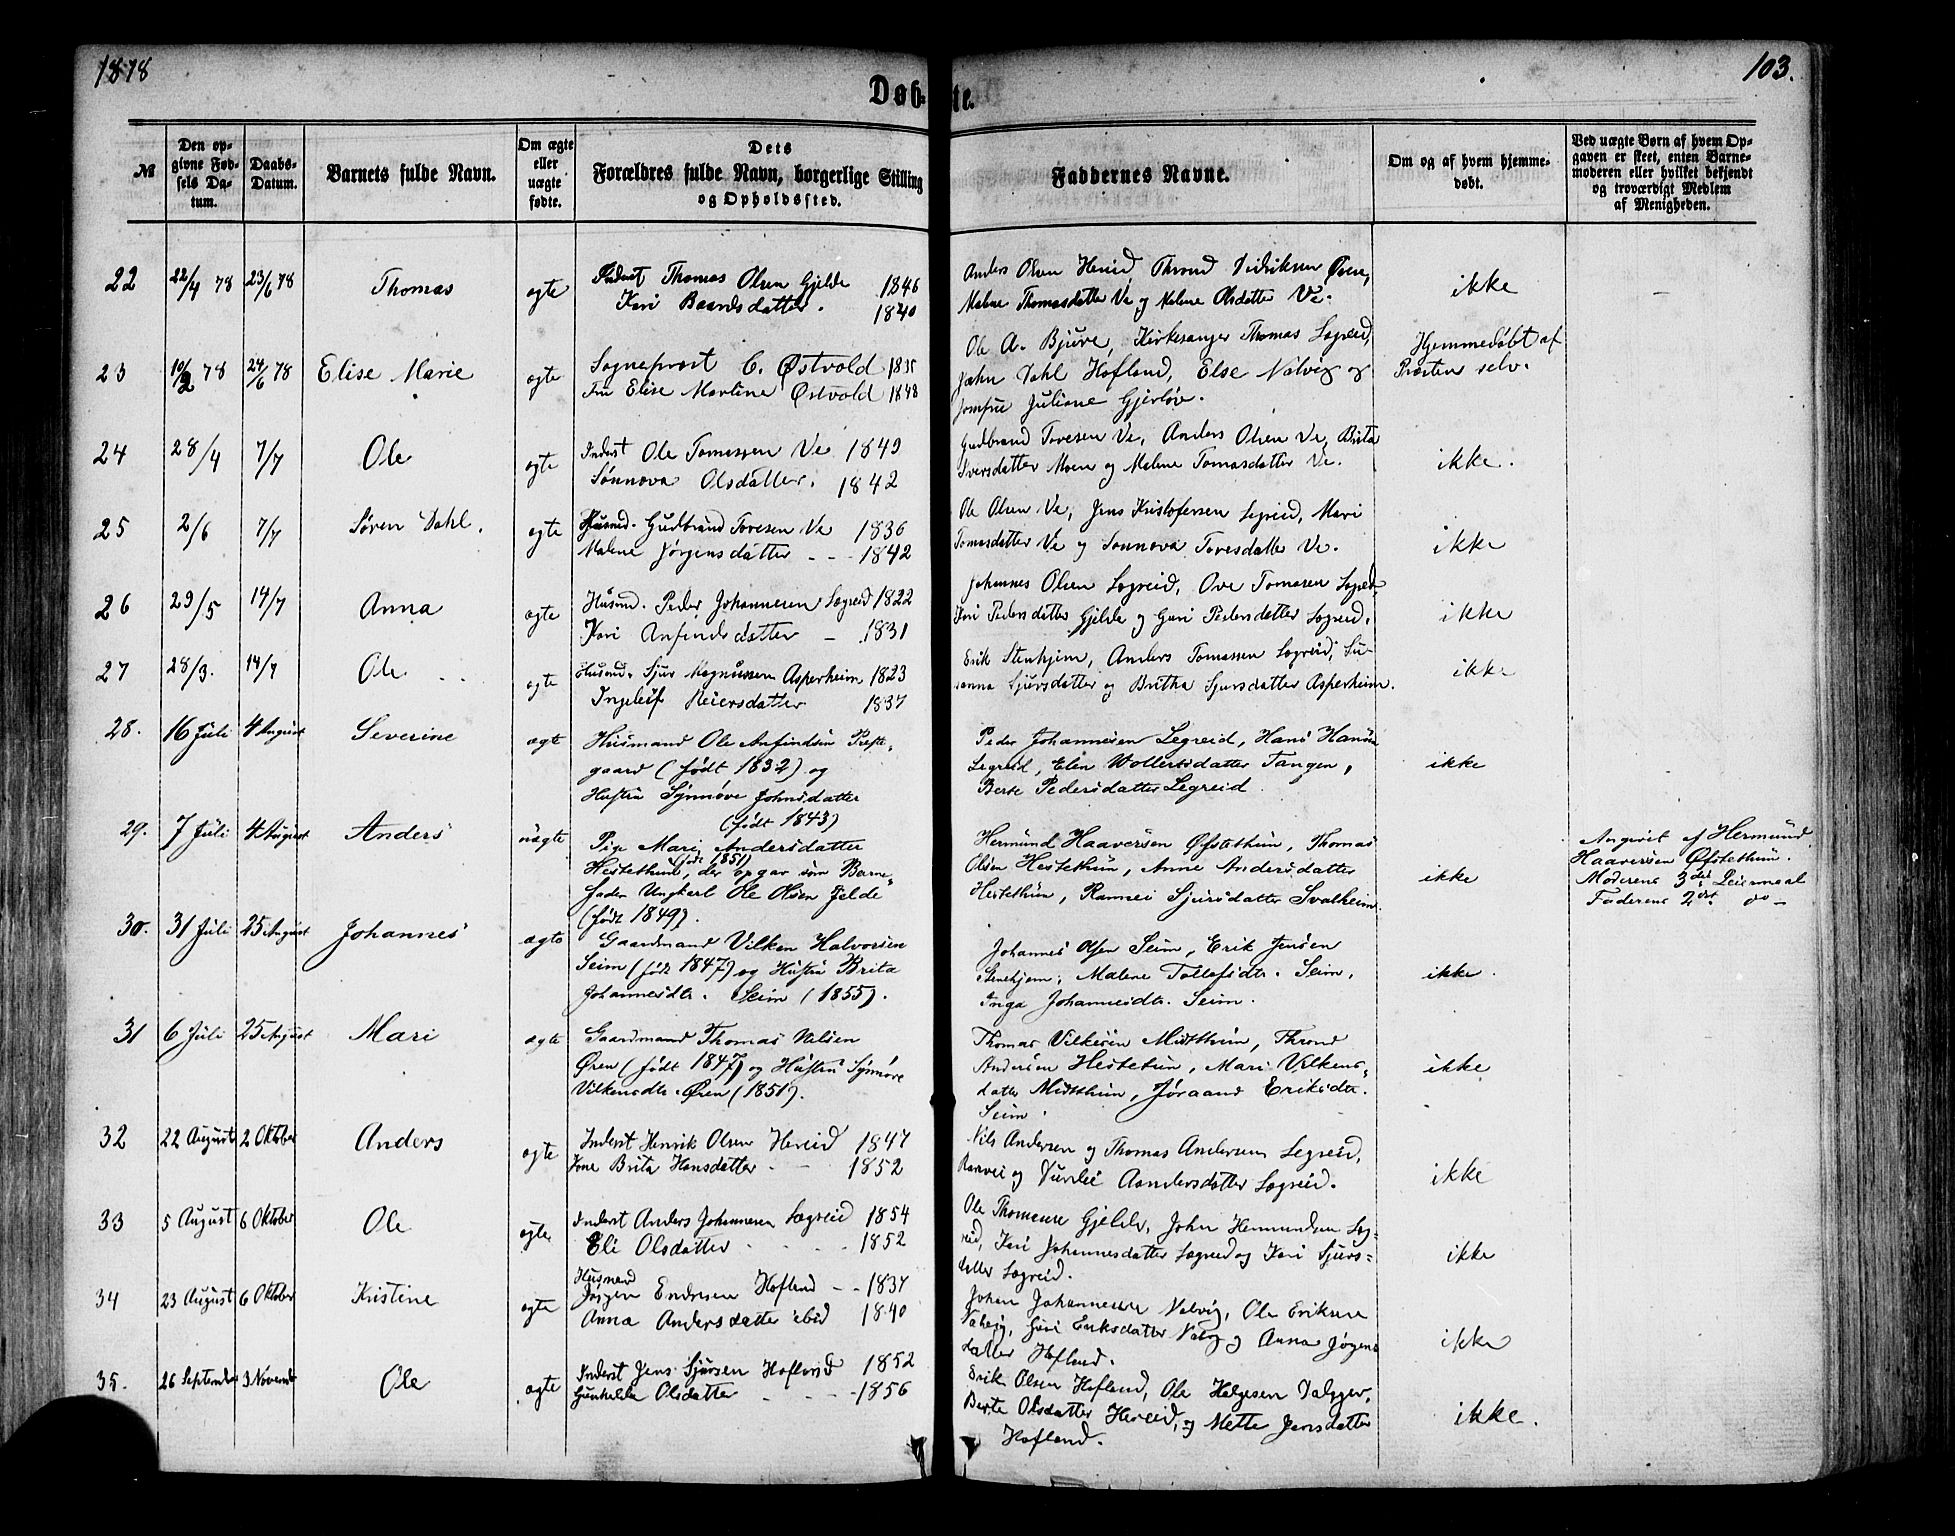 1878
103.
Døb-
te.
№
Den op-
givne Fød-
sels Da-
tum.
Daabs-
Datum.
Barnets fulde Navn.
Om ægte
eller
uægte
fødte.
Dets
Forældres fulde Navn, borgerlige Stilling
og Opholdssted.
Faddernes Navne.
Om og af hvem hjemme-
døbt.
Ved uægte Børn af hvem Op-
gaven er skeet, enten Barne-
moderen eller hvilket bekjendt
og troværdigt Medlem
af Menigheden.
22
22/4 78
23/6 78
Thomas
ægte
Inderst Thomas Olsen Gjelde 1846
Kari Baardsdatter. 1840
Anders Olsen Hereid, Thrond Didriksen Øren,
Malene Thomasdatter Ve og Malene Olsdatter Ve.
ikke
23
10/2 78
24/6 78
Elise Marie
ægte
Sogneprest C. Østvold 1835
Fru Elise Martine Østvold 1848
Ole A. Bjure, Kirkesanger Thomas Lægreid,
John Dahl Hofland, Else Nalvig og
Jomfru Juliane Gjerløv.
Hjemmedøbt af
Præsten selv.
24
28/4
7/7
Ole
ægte
Inderst Ole Tomassen Ve 1849
Sønnova Olsdatter. 1842
Gudbrand Toresen Ve, Anders Olsen Ve, Brita
Iversdatter Moen og Malene Tomasdatter Ve.
ikke.
25
2/6
7/7
Søren Dahl.
ægte
Husmd. Gudbrand Toresen Ve 1836
Malene Jørgensdatter - - 1842
Ole Olsen Ve, Jens Kristofersen Lægreid, Mari
Tomasdatter Ve og Sønnova Toresdatter Ve.
ikke
26
29/5
14/7
Anna
ægte
Husmd. Peder Johannesen Lægreid 1822
Kari Anfindsdatter - 1831
Johannes Olsen Lægreid, Ove Tomasen Lægreid,
Kari Pedersdatter Gjelde og Guri Pedersdatter Lægreid.
ikke
27
28/3.
14/7
Ole
ægte
Husmd. Sjur Magnussen Asperheim 1823
Ingeleif Reiersdatter 1837
Erik Stenhjem, Anders Tomassen Lægreid, Su-
sanna Sjursdatter og Britha Sjursdatter Asperheim.
ikke
28.
16 Juli
4 August
Severine
ægte
Husmand Ole Anfindsen Preste-
gaard (født 1832) og
Hustru Synnøve Johnsdatter
(født 1843)
Peder Johannesen Legreid, Hans Hansen
Legreid, Elen Wollertsdatter Tangen,
Berte Pedersdatter Legreid.
ikke
29.
7 Juli
4 August
Anders
uægte
Pige Mari Andersdatter
(født 1851)
Hestethun, der opgav som Barne-
fader Ungkarl Ole Olsen Fjelde
(født 1849).
Hermund Haaversen Øfstethun, Thomas
Olsen Hestethun, Anne Andersdatter
Hestethun, Rannei Sjursdatter Svalheim.
ikke
Angivet af Hermund
Haaversen Øfstethun.
Moderens 3die Leiermaal
Faderens 2det do -
30.
31 Juli
25 August
Johannes
ægte
Gaardmand Vilken Halvorsen
Seim (født 1847) og Hustru Brita
Johannesdtr. Seim (1855).
Johannes Olsen Seim, Erik Jensen
Stenehjem, Malene Tollefsdtr. Seim,
Inga Johannesdtr. Seim.
ikke.
31
6 Juli
25 August
Mari
ægte
Gaardmand Thomas Nilsen
Øren (født 1847) og Hustru Synnøve
Vilkensdtr. Øren (1851).
Thomas Vilkesen Midtthun, Thrond
Andersen Hestetun, Mari Vilkens-
datter Midtthun, Jøraand Eriksdtr.
Seim.
ikke
32
22 August
2 Oktober
Anders
ægte
Inderst Henrik Olsen Hereid 1847
Kone Brita Hansdatter - - 1852
Nils Andersen og Thomas Andersen Legreid,
Ranvei og Durdei Aandersdatter Lægreid.
ikke
33
5 August
6 Oktober
Ole
ægte
Inderst Anders Johannesen Lægreid 1854
Eli Olsdatter 1852
Ole Thomesen Gjelde, John Hermundsen Læg-
reid, Kari Johannesdatter Lægreid og Kari Sjurs-
datter Lægreid.
ikke
34
23 August
6 Oktober
Kristine
ægte
Husmand
Jørgen Endresen Hofland - - 1837
Anna Andersdatter ibid 1840
Johan Johannesen Nalvig, Ole Eriksen
Nalvig, Guri Eriksdatter Nalvig og Anna Jørgens-
datter Hofland.
ikke
35.
26 September
3 Novemb
Ole
ægte
Inderst Jens Sjursen Hoflend 1852
Gunhilde Olsdatter - - - 1856
Erik Olsen Hofland, Ole Helgesen Dalgger,
Berte Olsdatter Hereid, og Mette Jensdatter
Hofland.
ikke.